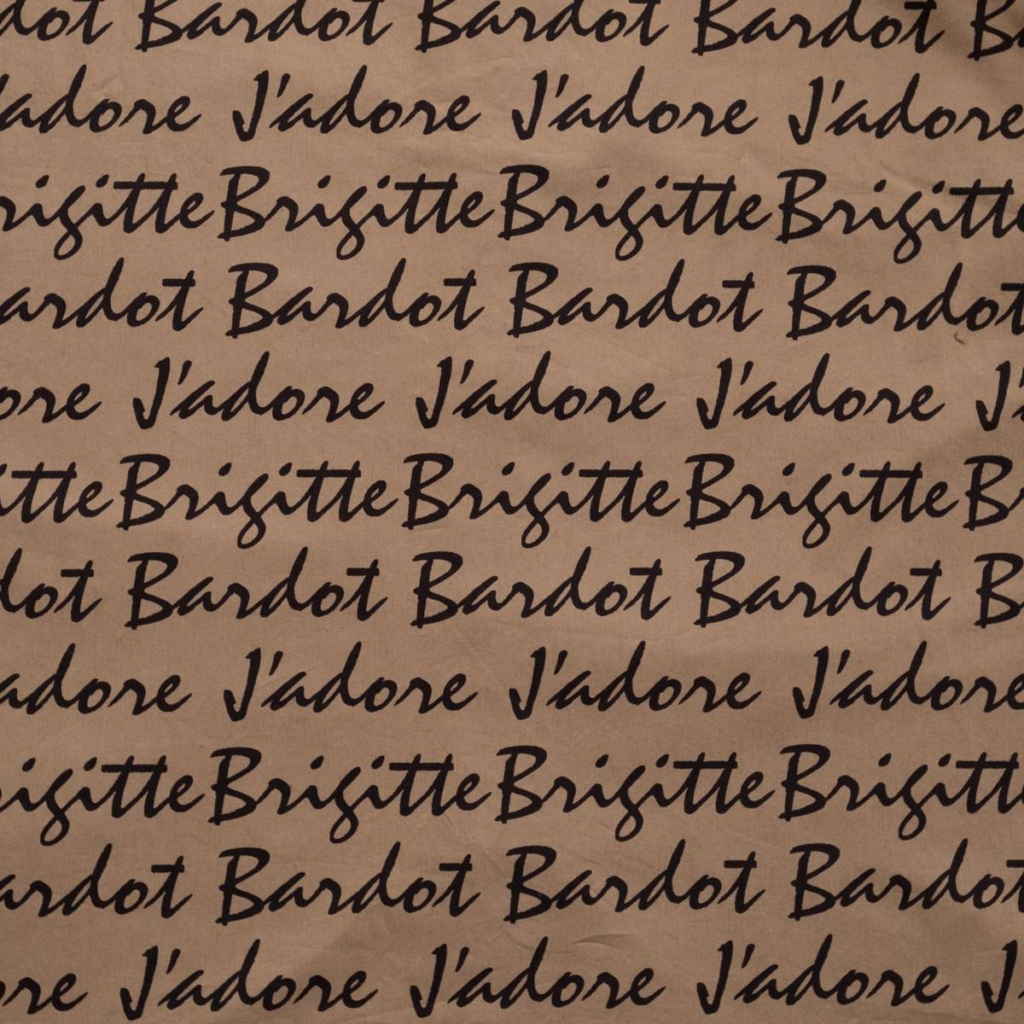 dot Bardot Bardot Bardot Ba
J'adore J'adore J'adore J'adore
Brigitte Brigitte Brigitte Brigitte
Bardot Bardot Bardot Bardot
ore J'adore J'adore J'adore J'
itte Brigitte Brigitte Brigitte Br
dot Bardot Bardot Bardot B
adore J'adore J'adore J'adore
rigitte Brigitte Brigitte Brigitte
ardot Bardot Bardot Bardot
ore J'adore J'adore J'adore J